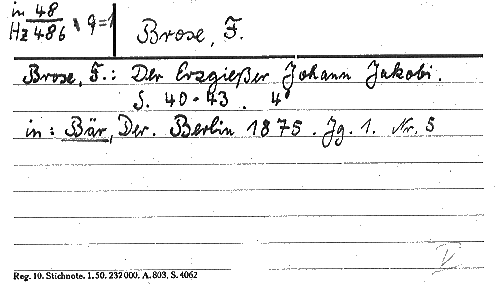 in 48
Hz 486 \ 9=1
Brose, F.
Brose, F.: Der Erzgießer Johann Jakobi.
S. 40-43. 4°
in: Bär, Der. Berlin 1875. Jg. 1. Nr. 5
Reg. 10. Stichnote. 1. 50. 232000. A. 803, S. 4062